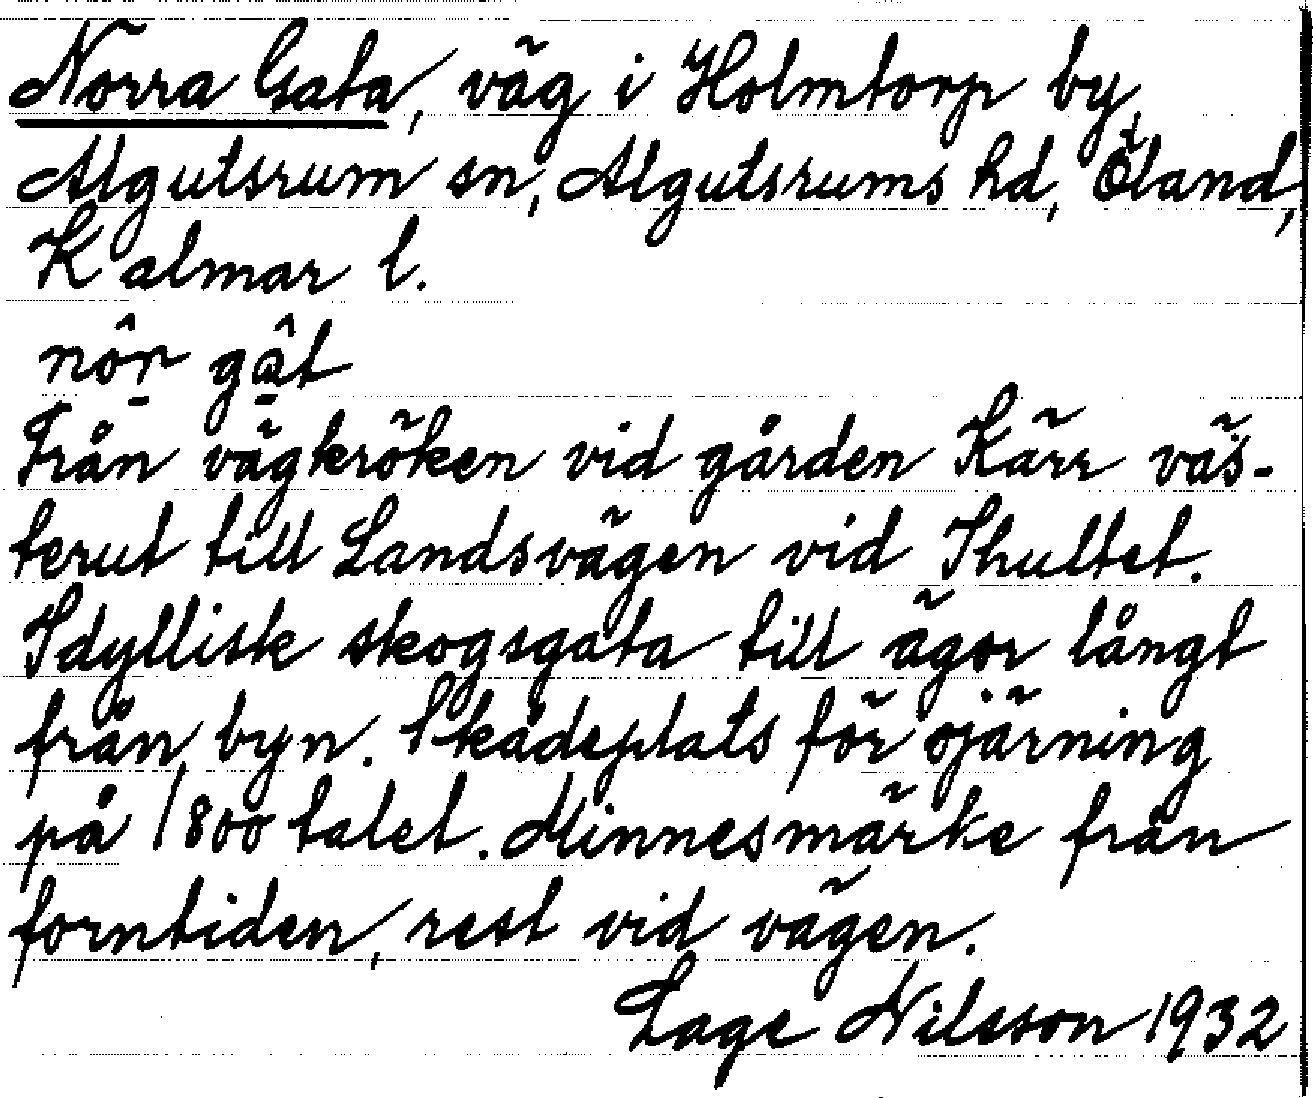 Norra Gata, väg i Holmtorp by,
Algutsrum sn, Algutsrums hd, Öland,
Kalmar l.
nôr gât
Från vägkröken vid gården Kärr väs-
terut till Landsvägen vid Ihultet.
Idyllisk skogsgata till ägor långt
från byn. Skådeplats för ojärning
på 1800 talet. Minnesmärke från
forntiden, rest vid vägen.
Lage Nilsson 1932